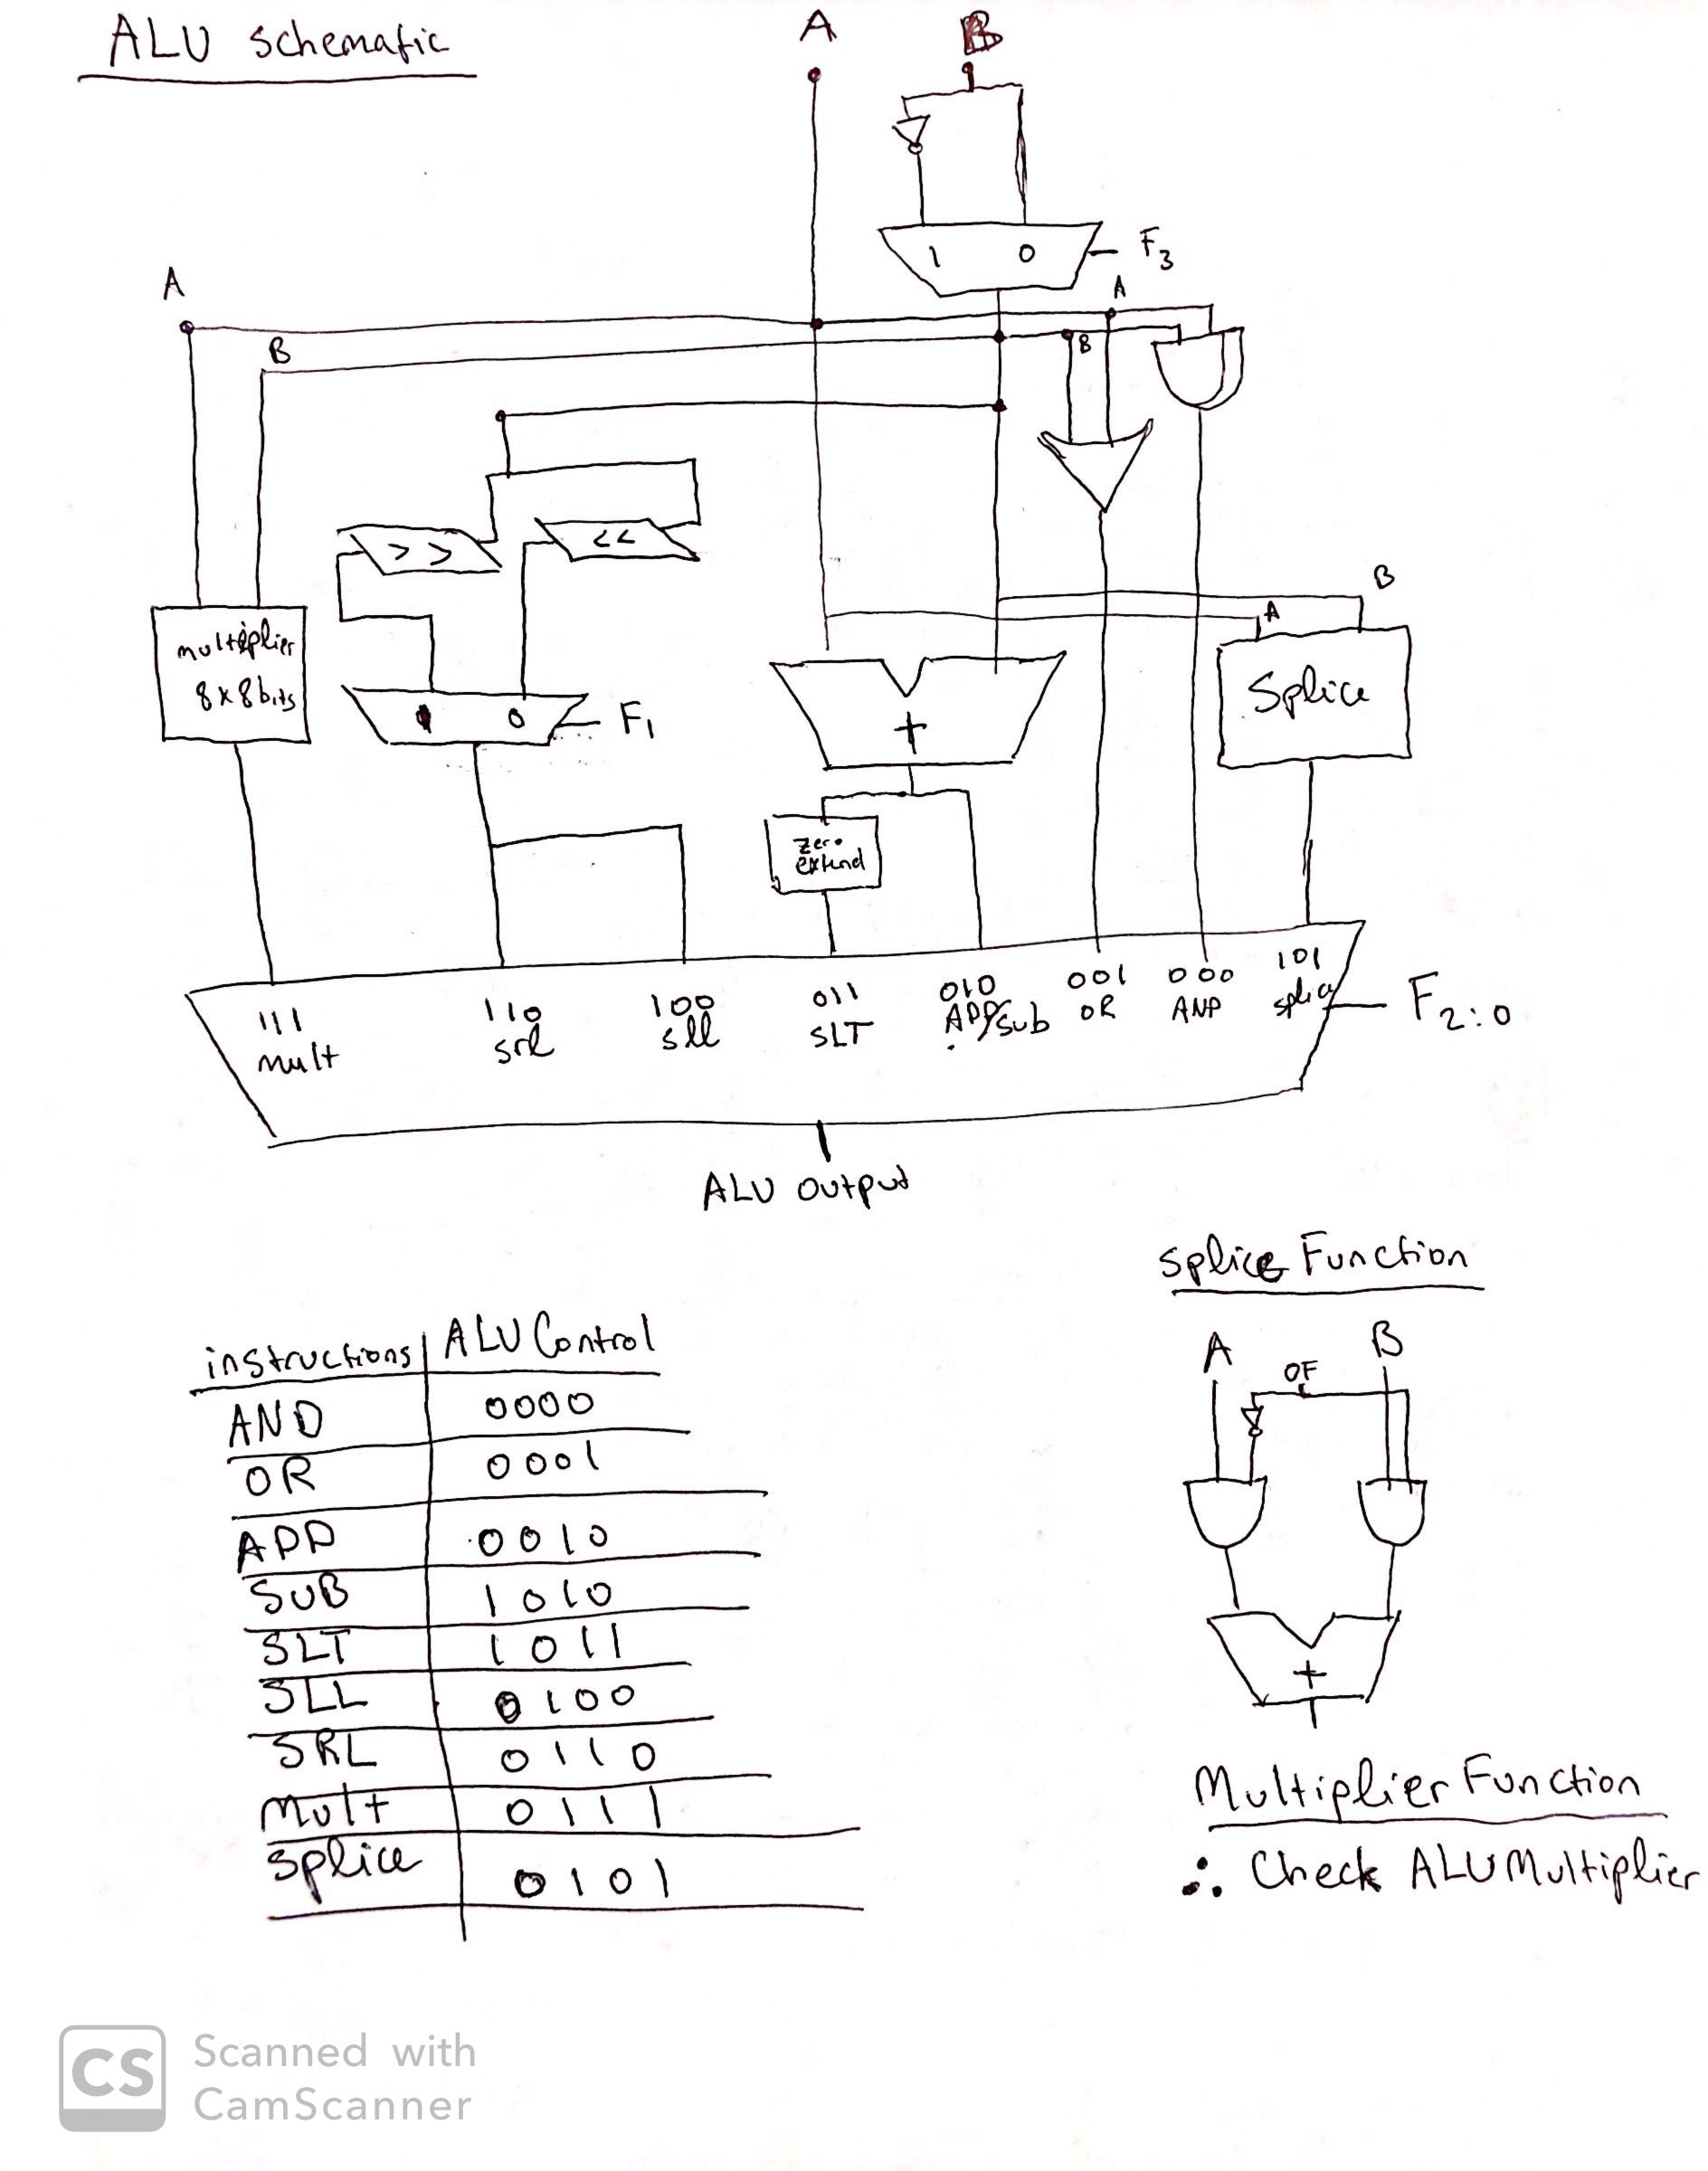 ALU schematic
A
B
1 0
F3
A
A
B
B
>>
<<
B
A
multiplier
8x8bits
Splice
0
F1
+
zero
extend
111
mult
110
srl
100
sll
011
SLT
010
ADD/sub
001
OR
000
AND
101
splice
F2:0
ALU output
splice Function
A
B
0F
+
instructions ALU Control
AND 0000
OR 0001
ADD 0010
SUB 1010
SLT 1011
SLL 0100
SRL 0110
Mult 0111
splice 0101
Multiplier Function
∴ Check ALU Multiplier
CS
Scanned with
CamScanner